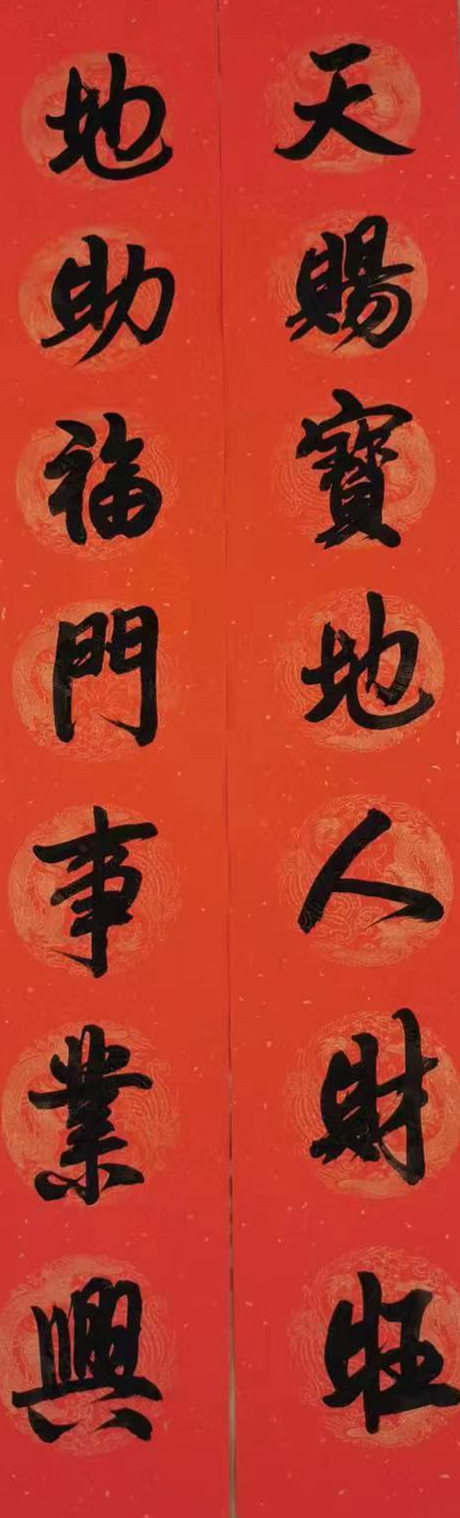 天賜寶地人財旺
地助福門事業興